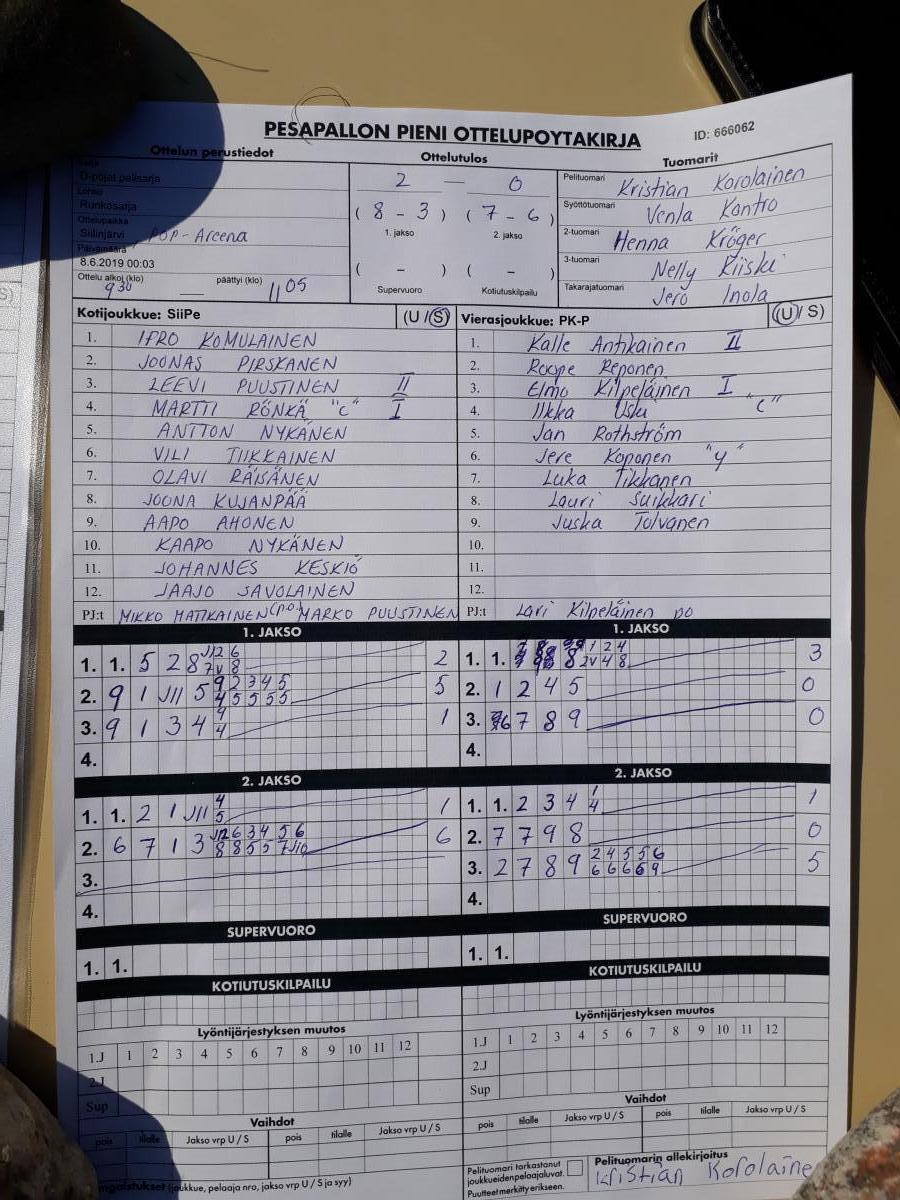 PESAPALLON PIENI OTTELUPOYTAKIRJA
ID: 666062
Ottelun perustiedot
Ottelutulos
Tuomarit
D-pojat pelisarja
Lohko
Runkosarja
Ottelupaikka
Siilinjärvi, POP-Areena
Päivämäärä
8.6.2019 00:03
Ottelu alkoi (klo)
päättyi (klo)
9 30 — 11 05
2 — 0
( 8 - 3 ) ( 7 - 6 )
1. jakso 2. jakso
( - ) ( - )
Supervuoro Kotiutuskilpailu
Pelituomari Kristian Korolainen
Syöttötuomari Venla Kontro
2-tuomari Henna Kröger
3-tuomari Nelly Kiiski
Takarajatuomari Jero Inola
Kotijoukkue: SiiPe (U / S)
1. IPRO KOMULAINEN
2. JOONAS PIRSKANEN
3. LEEVI PUUSTINEN II
4. MARTTI RÖNKÄ "C" I
5. ANTTON NYKÄNEN
6. VILI TIIKKAINEN
7. OLAVI RÄISÄNEN
8. JOONA KUJANPÄÄ
9. AAPO AHONEN
10. KAAPO NYKÄNEN
11. JOHANNES KESKIÖ
12. JAAJO SAVOLAINEN
PJ:t MIKKO MATIKAINEN (p.o.) MARKO PUUSTINEN
Vierasjoukkue: PK-P (U / S)
1. Kalle Antikainen II
2. Roope Reponen
3. Elmo Kilpeläinen I
4. Ilkka Usku "C"
5. Jan Rothström
6. Jere Koponen "y"
7. Luka Tikkanen
8. Lauri Suikkari
9. Juska Tolvanen
10.
11.
12.
PJ:t Lari Kilpeläinen po
1. JAKSO
1. 1. 5 2 8 J12 6 2
7 V 8
2. 9 1 J11 5 9 2 3 4 5 5
4 5 5 5 5
3. 9 1 3 4 9 1
4
4.
1. JAKSO
1. 1. 8 1 2 4 3
2V 4 8
2. 1 2 4 5 0
3. 6 7 8 9 0
4.
2. JAKSO
1. 1. 2 1 J11 4 1
5
2. 6 7 1 3 J12 6 3 4 5 6 6
8 8 5 5 7 J10
3.
4.
2. JAKSO
1. 1. 2 3 4 1 1
4
2. 7 7 9 8 0
3. 2 7 8 9 2 4 5 5 6 5
6 6 6 6 9
4.
SUPERVUORO
1. 1.
SUPERVUORO
1. 1.
KOTIUTUSKILPAILU
KOTIUTUSKILPAILU
Lyöntijärjestyksen muutos
1.J 1 2 3 4 5 6 7 8 9 10 11 12
2.J
Sup
Lyöntijärjestyksen muutos
1.J 1 2 3 4 5 6 7 8 9 10 11 12
2.J
Sup
Vaihdot
pois tilalle Jakso vrp U / S pois tilalle Jakso vrp U / S
Vaihdot
pois tilalle Jakso vrp U / S pois tilalle Jakso vrp U / S
(joukkue, pelaaja nro, jakso vrp, U / S ja syy)
Pelituomari tarkastanut
joukkueidenpelaajaluvat.
Puutteet merkitty erikseen.
Pelituomarin allekirjoitus
Kristian Korolaine